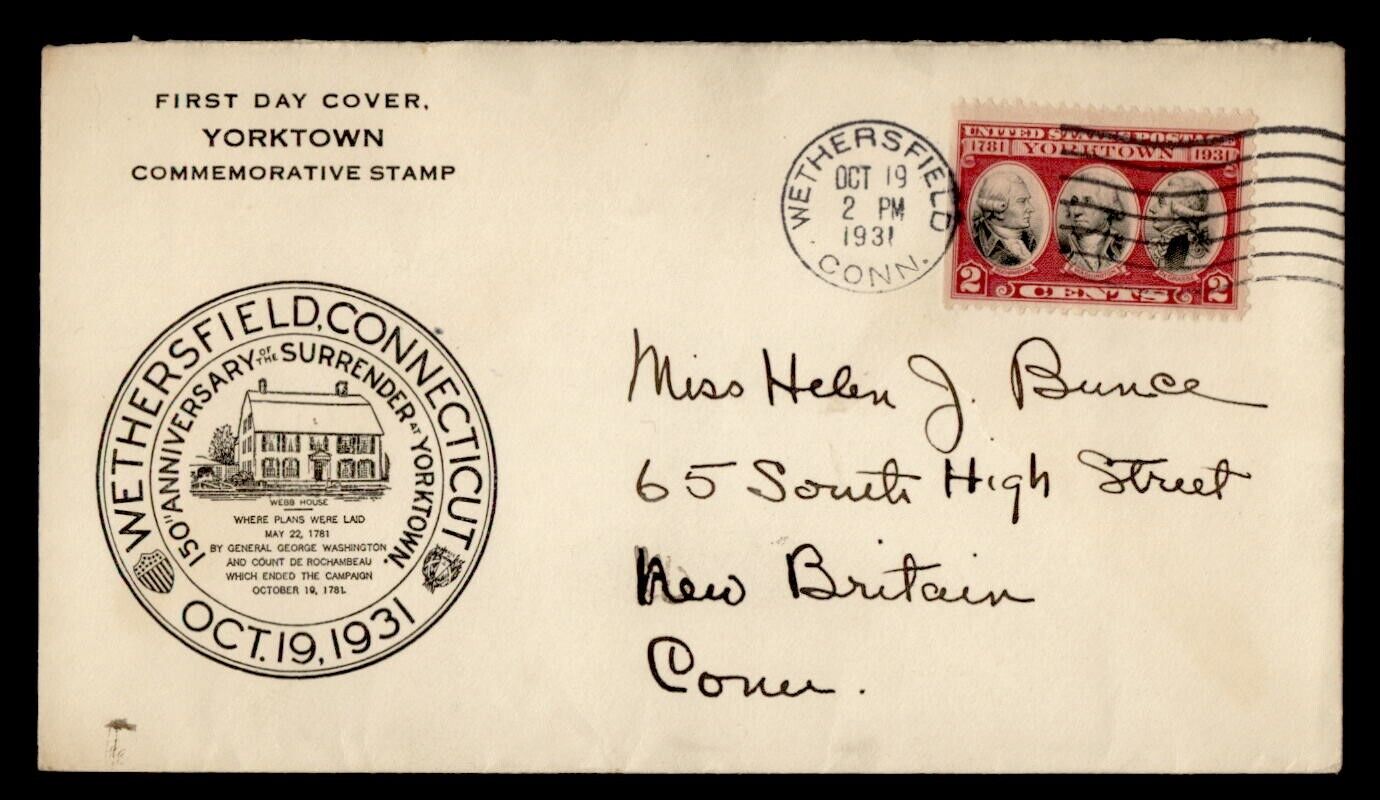 FIRST DAY COVER,
YORKTOWN
COMMEMORATIVE STAMP
WETHERSFIELD
OCT 19
2 PM
1931
CONN.
UNITED STATES POSTAGE
1781 YORKTOWN 1931
2 CENTS 2
WETHERSFIELD, CONNECTICUT
150TH ANNIVERSARY OF THE SURRENDER AT YORKTOWN.
WEBB HOUSE
WHERE PLANS WERE LAID
MAY 22, 1781
BY GENERAL GEORGE WASHINGTON
AND COUNT DE ROCHAMBEAU
WHICH ENDED THE CAMPAIGN
OCTOBER 19, 1781.
OCT. 19, 1931
Miss Helen J. Bunce
65 South High Street
New Britain
Conn.